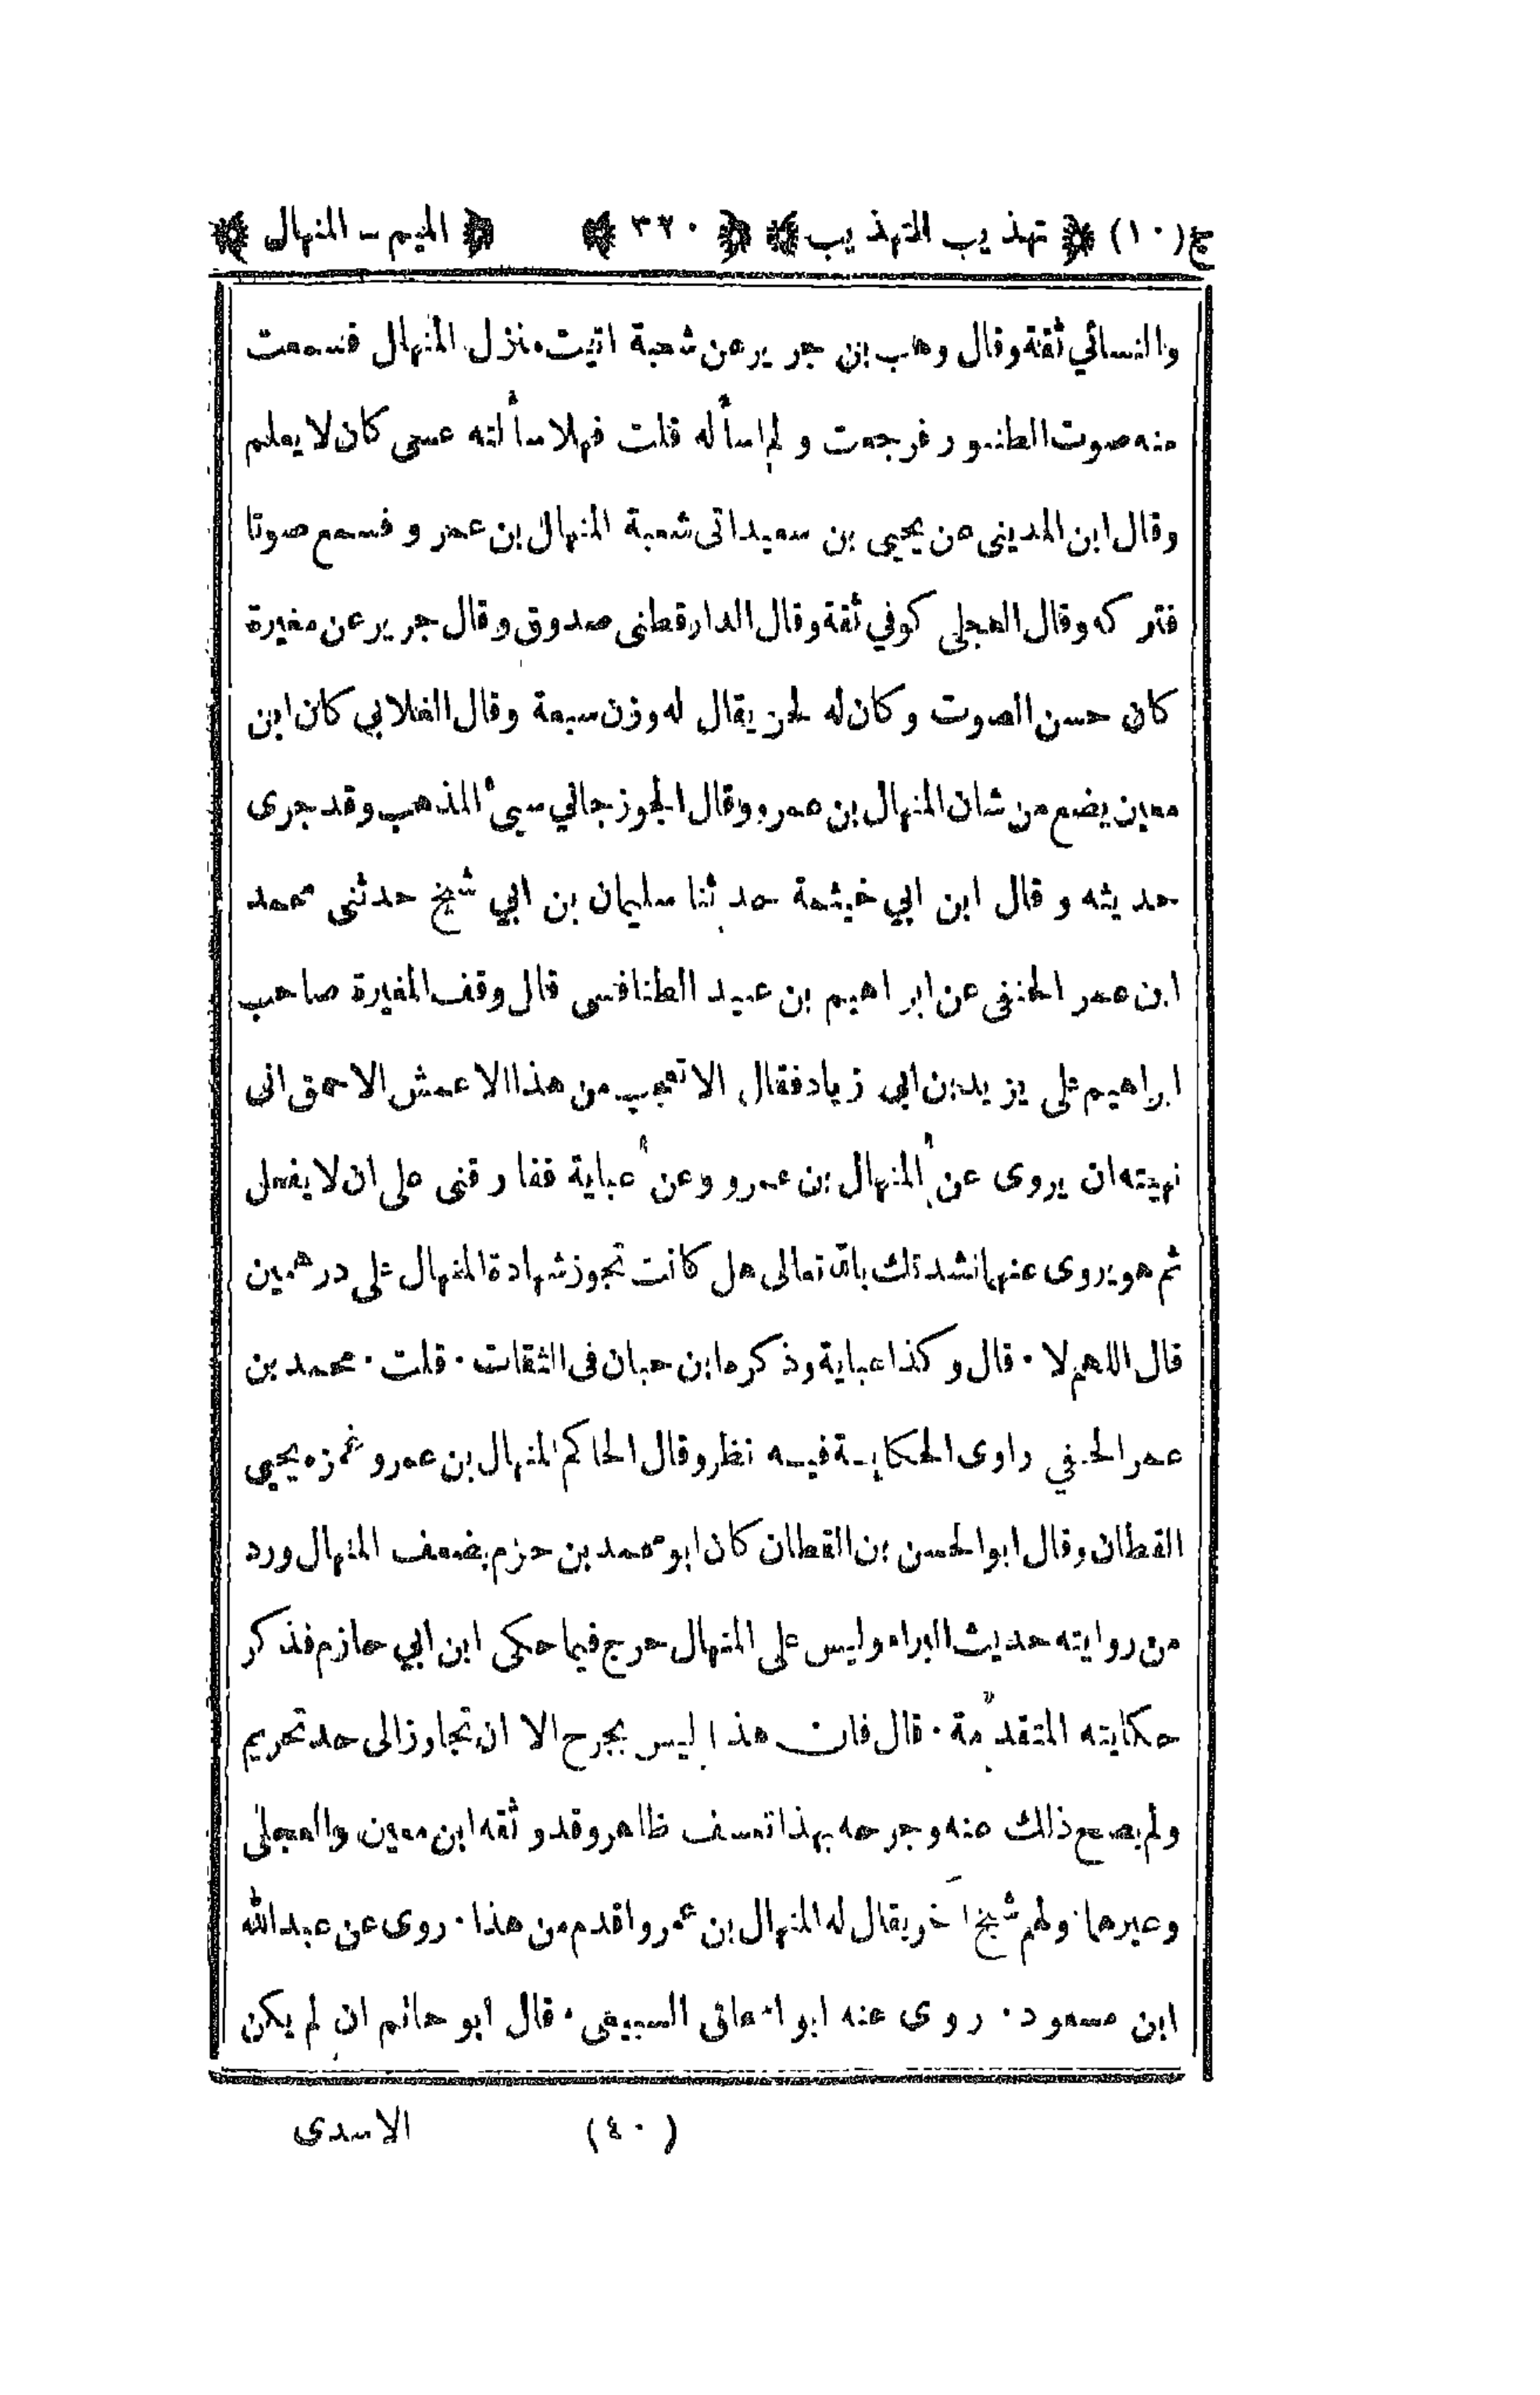 ج(١٠) ﴿ تهذيب التهذيب ﴾ ﴿ ٣٢٠ ﴾ ﴿ الميم - المنهال ﴾
والنسائي ثقة وقال وهب بن جرير عن شعبة اتيت منزل المنهال فسمعت
منه صوت الطنبور فرجعت ولم اسأله قلت فهلا سألته عسى كان لا يعلم
وقال ابن المديني عن يحيى بن سعيد اتى شعبة المنهال بن عمرو فسمع صوتا
فتركه وقال العجلي كوفي ثقة وقال الدارقطني صدوق وقال جرير عن مغيرة
كان حسن الصوت وكان له لحن يقال له وزن سبعة وقال الغلابي كان ابن
معين يضع من شان المنهال بن عمرو وقال الجوزجاني سيئ المذهب وقد جرى
حديثه وقال ابن ابي خيثمة حدثنا سليمان بن ابي شيخ حدثني محمد
ابن عمر الحنفي عن ابراهيم بن عبيد الطنافسي قال وقف المغيرة صاحب
ابراهيم على يزيد بن ابي زياد فقال الا تعجب من هذا الاعمش الاحمق اني
نهيته ان يروى عن المنهال بن عمرو وعن عباية ففارقني على ان لا يفعل
ثم هو يروى عنهما نشدتك بالله تعالى هل كانت تجوز شهادة المنهال على درهمين
قال اللهم لا ٠ قال وكذا عباية وذكره ابن حبان في الثقات ٠ قلت ٠ محمد بن
عمر الحنفي راوى الحكاية فيه نظر وقال الحاكم المنهال بن عمرو غمزه يحيى
القطان وقال ابو الحسن بن القطان كان ابو محمد بن حزم يضعف المنهال ورد
من روايته حديث البراء وليس على المنهال حرج فيما حكى ابن ابي حازم فذكر
حكايته المتقدمة ٠ قال فان هذا ليس بجرح الا ان تجاوز الى حد تحريم
ولم يصح ذلك عنه وجرحه بهذا تعسف ظاهر وقد وثقه ابن معين والعجلي
وغيرهما ولهم شيخ آخر يقال له المنهال بن عمرو اقدم من هذا ٠ روى عن عبد الله
ابن مسعود ٠ روى عنه ابو اسحاق السبيعي ٠ قال ابو حاتم ان لم يكن
(٤٠) الاسدى